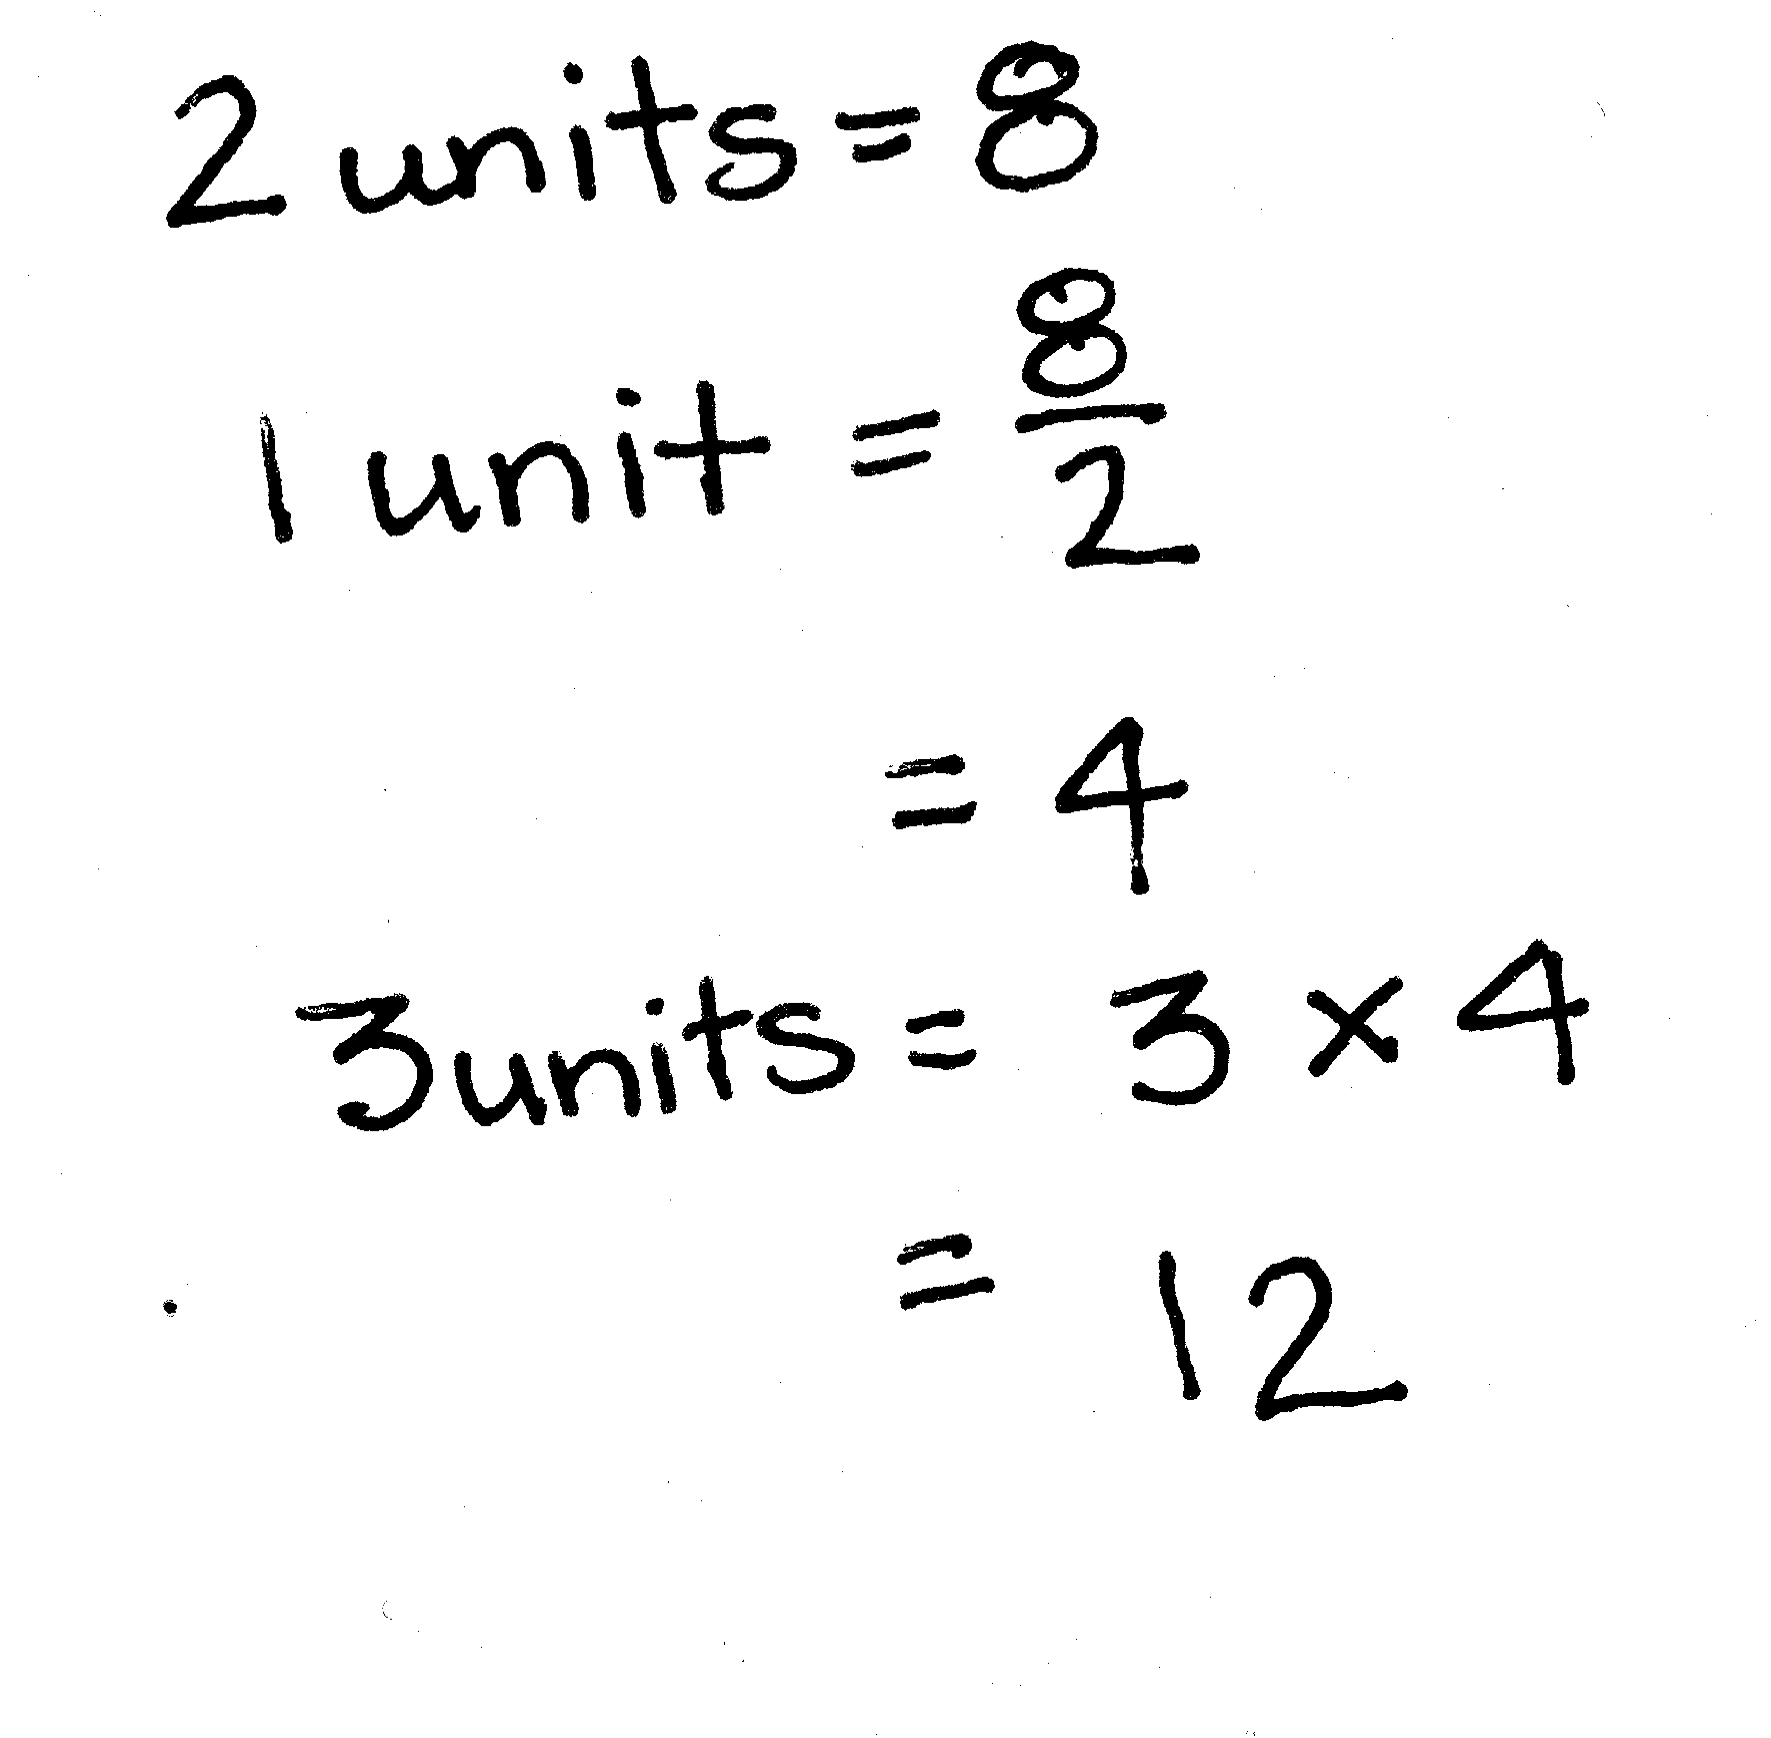 2 units = 8
1 unit = 8/2
= 4
3 units = 3 × 4
= 12